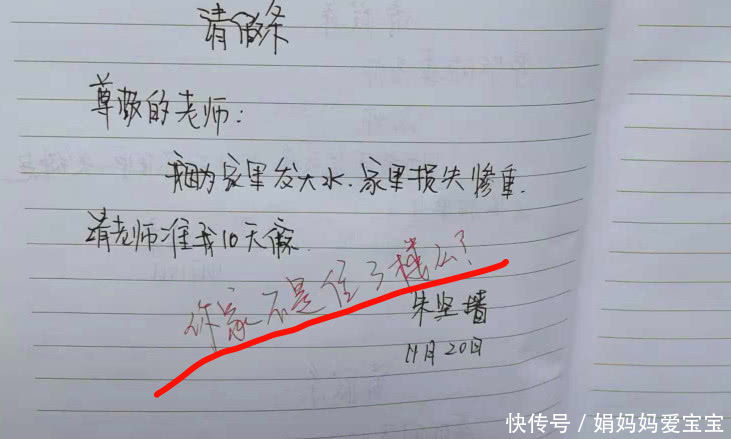 请假条
尊敬的老师:
我因为家里发大水、家里损失惨重.
请老师准我10天假.
你家不是住3楼么?
朱坚墙
11月20日
快传号 / 娟妈妈爱宝宝